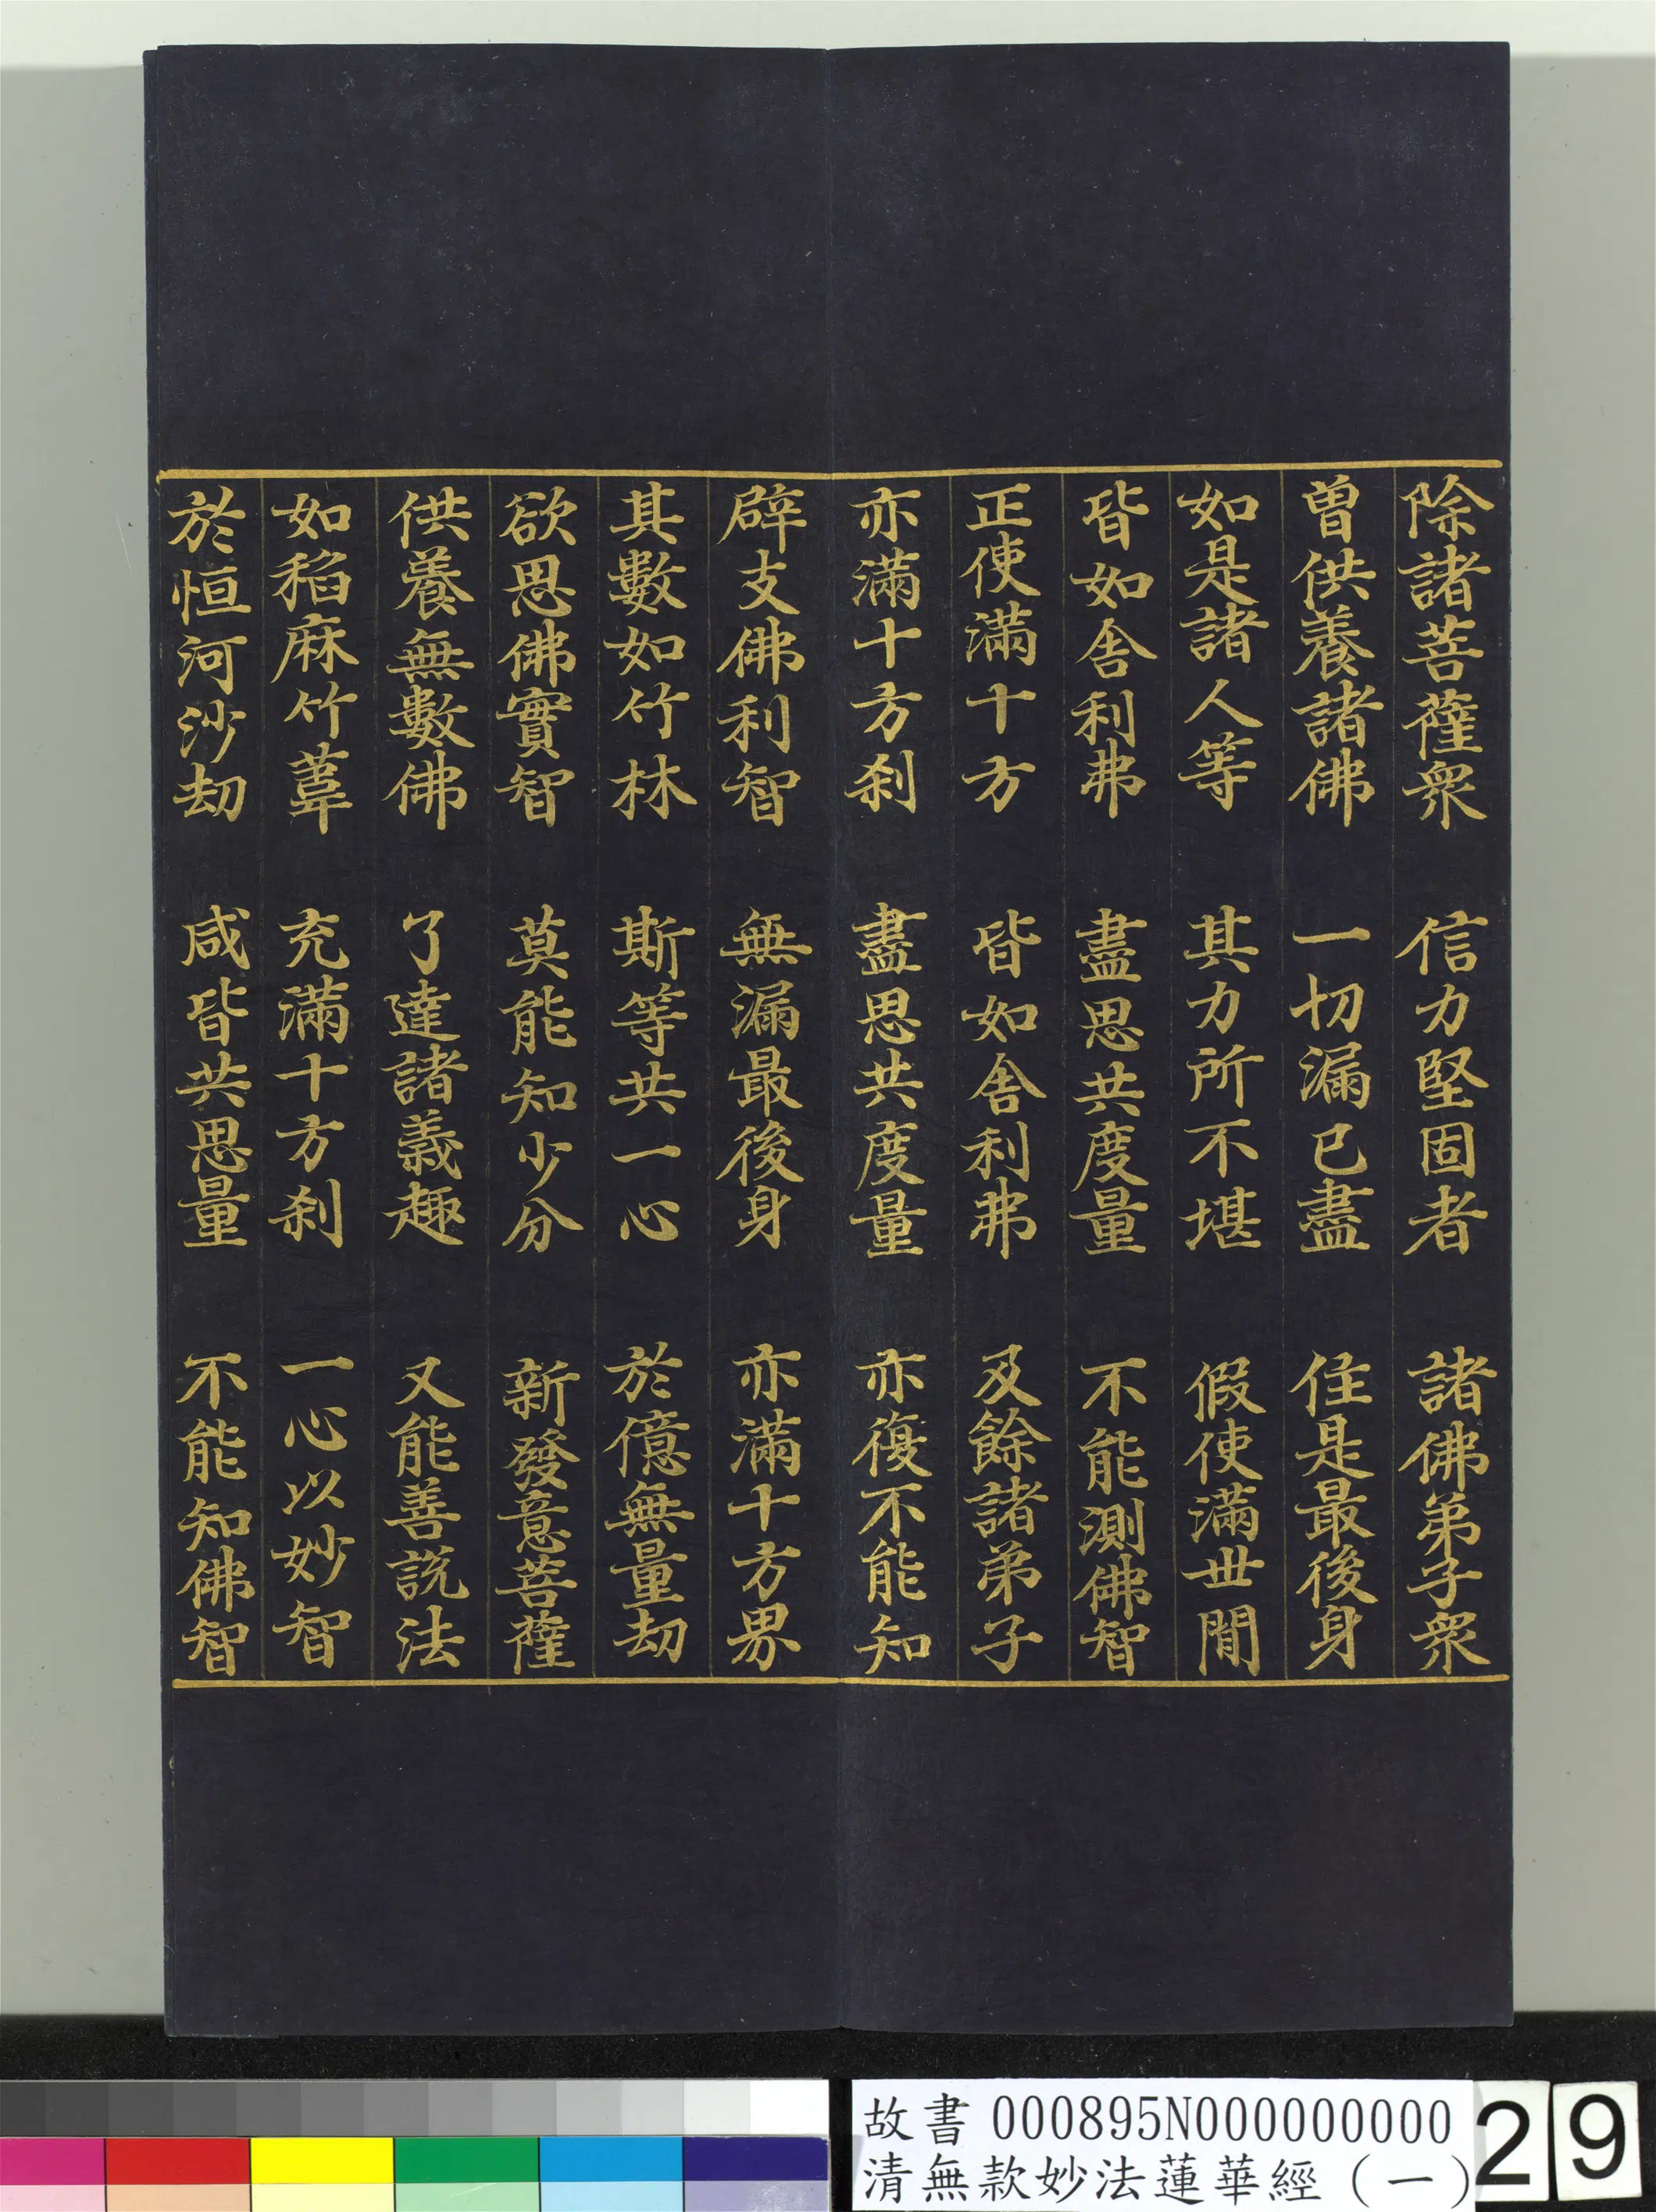 除諸菩薩衆　信力堅固者　諸佛弟子衆
曽供養諸佛　一切漏已盡　住是最後身
如是諸人等　其力所不堪　假使滿世間
皆如舍利弗　盡思共度量　不能測佛智
正使滿十方　皆如舍利弗　及餘諸弟子
亦滿十方刹　盡思共度量　亦復不能知
辟支佛利智　無漏最後身　亦滿十方界
其數如竹林　斯等共一心　於億無量劫
欲思佛實智　莫能知少分　新發意菩薩
供養無數佛　了達諸義趣　又能善説法
如稻麻竹葦　充滿十方刹　一心以妙智
於恒河沙劫　咸皆共思量　不能知佛智
故書 000895N000000000 29
清無款妙法蓮華經（一）